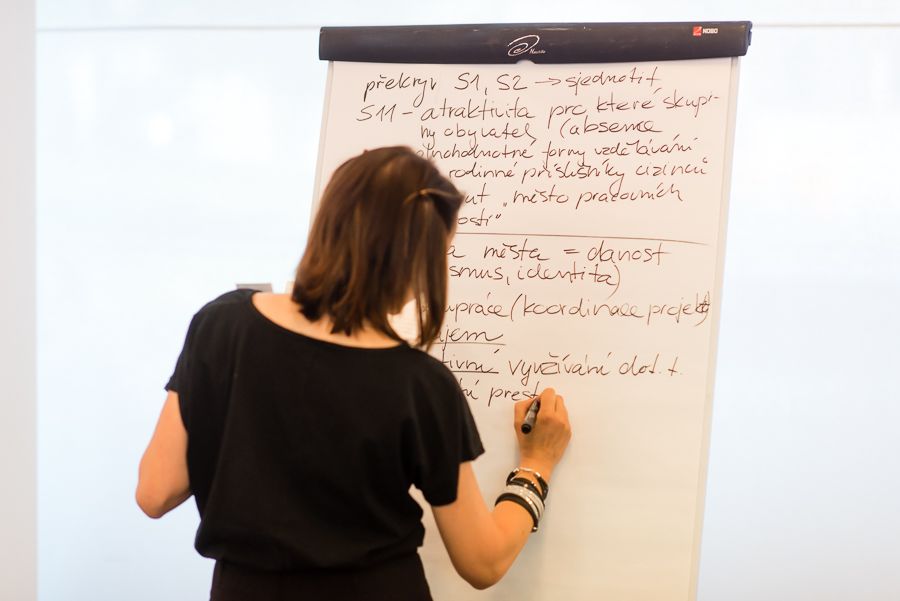 NOBO
překryv S1, S2 → sjednotit
S11 - atraktivita pro které skupi-
ny obyvatel (absence
lnohodnotné formy vzdělávání
rodinné příslušníky cizinců
ut „město pracovních
ostí“
a města = danost
ismus, identita)
upráce (koordinace projektů)
jem
tivní využívání dot. t.
ní prest